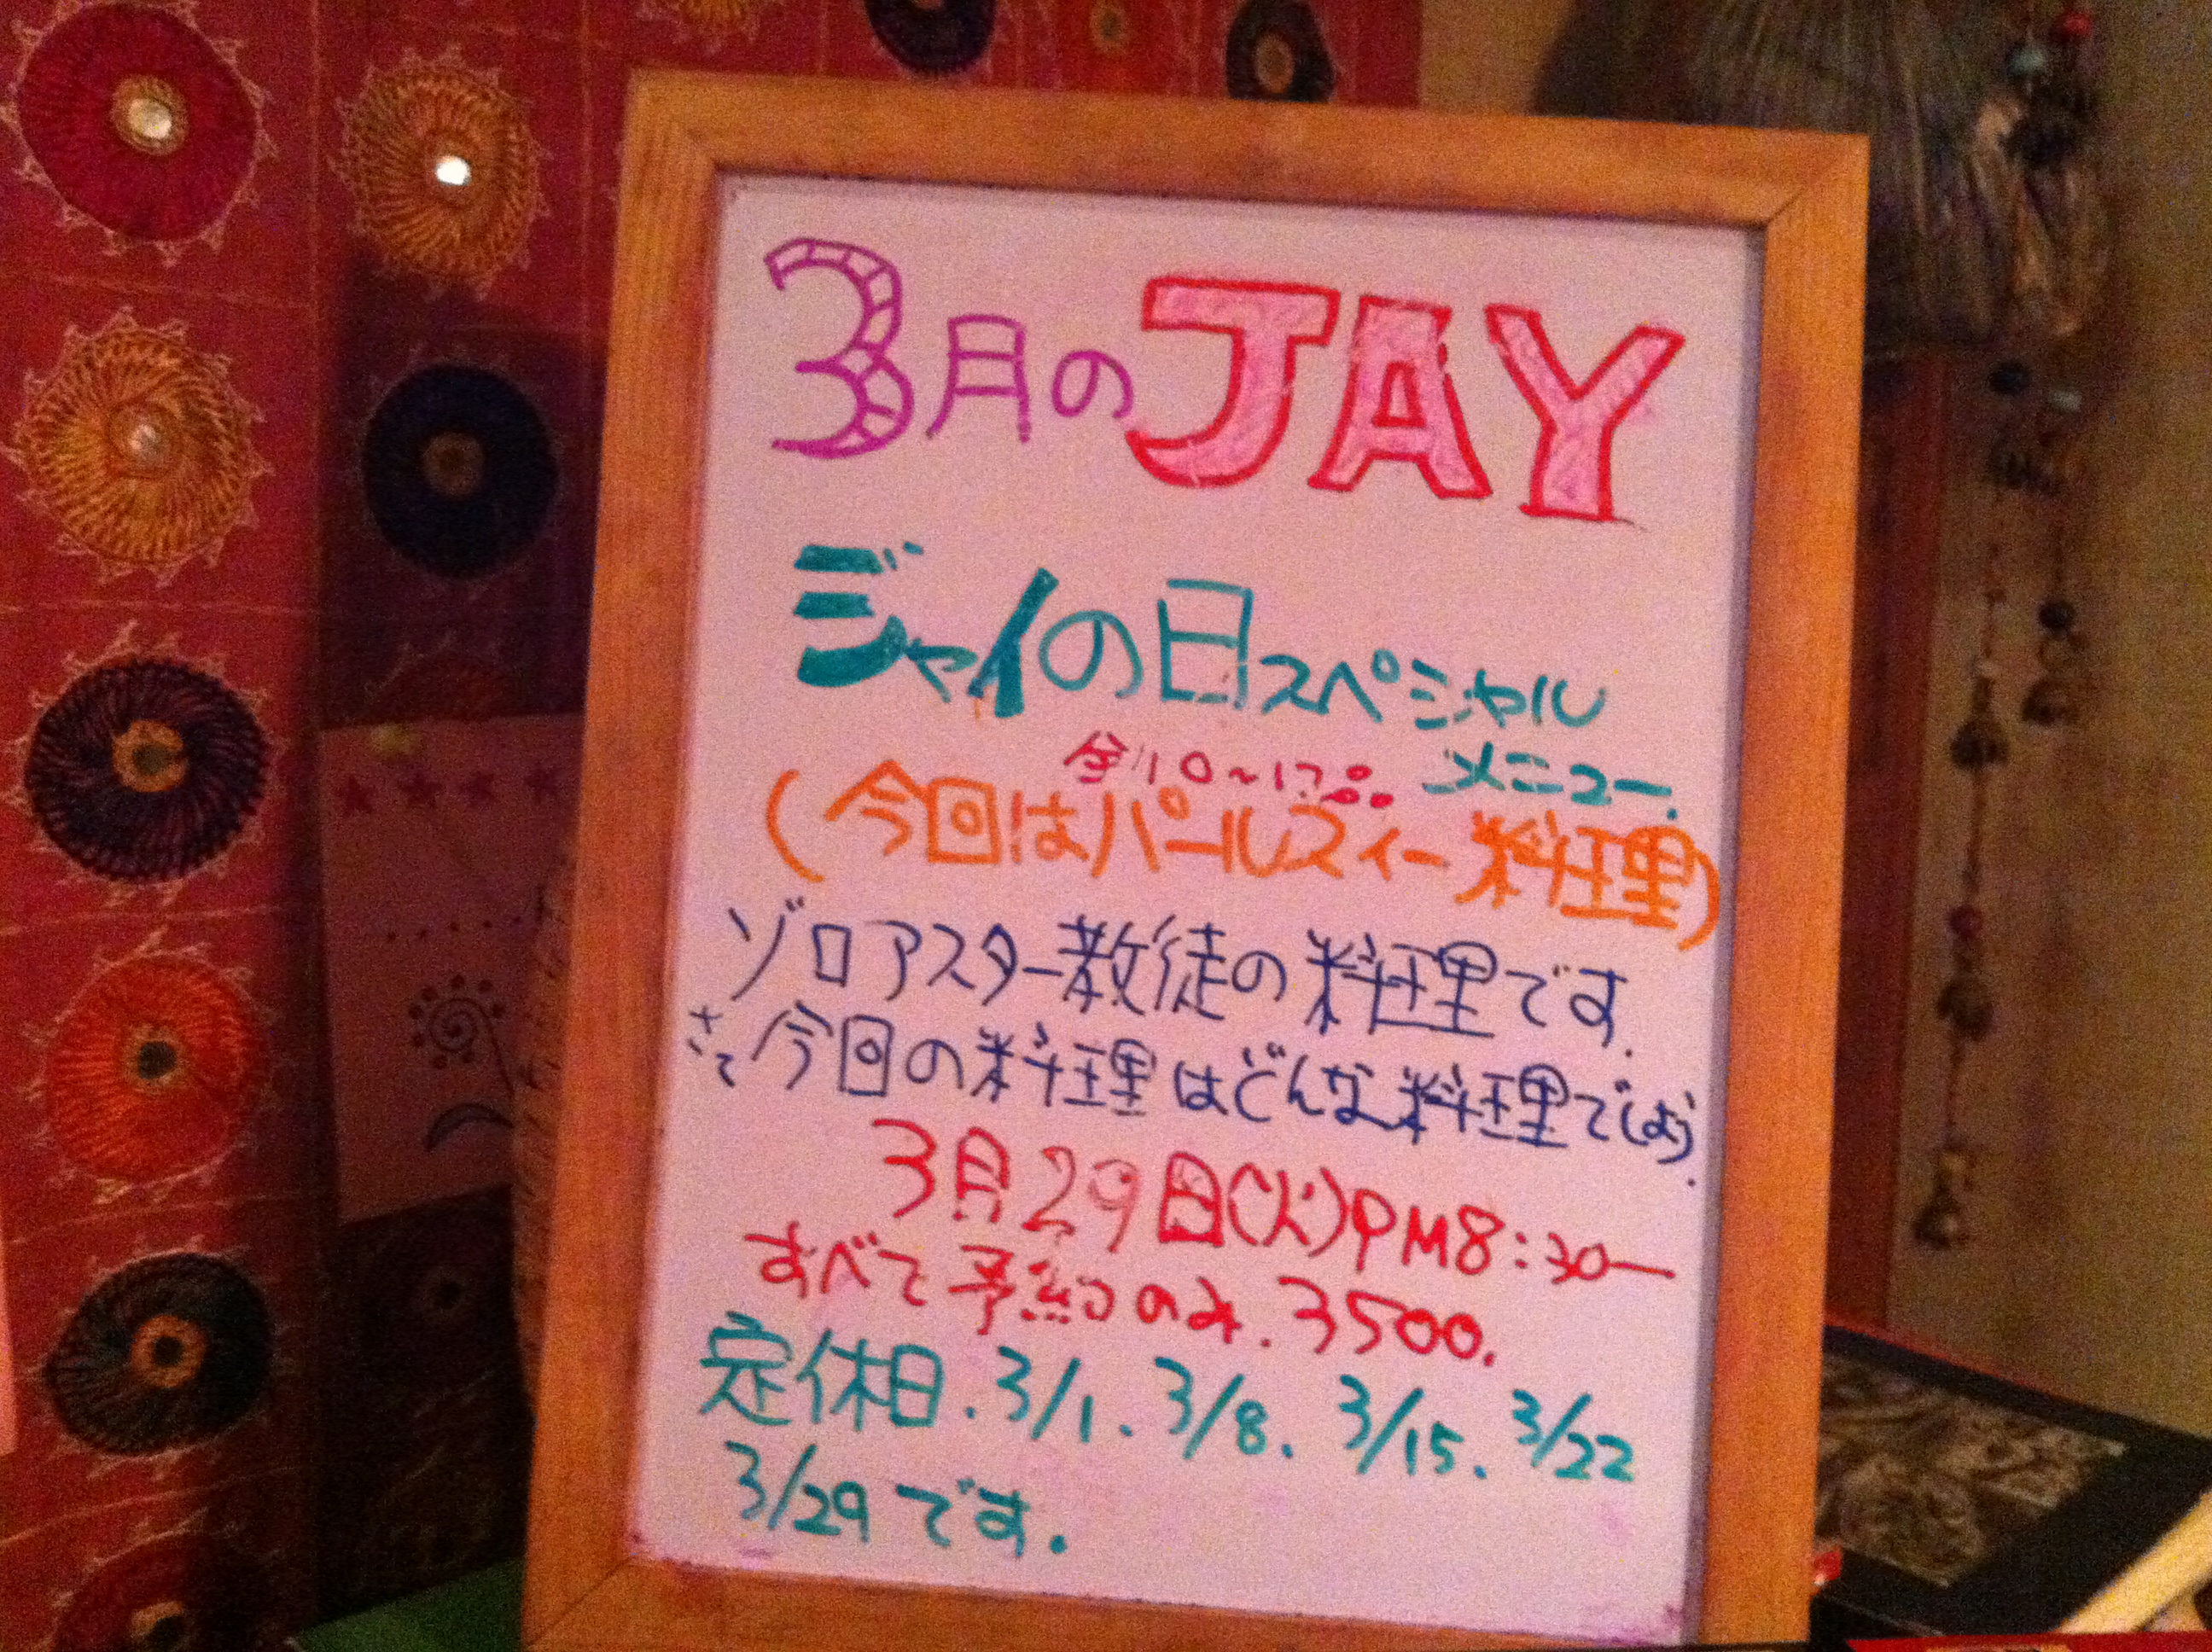 3月のJAY
ジャイの日スペシャル
全10〜12品 メニュー.
(今回はパールスィー料理)
ゾロアスター教徒の料理です.
さて今回の料理はどんな料理でしょう.
3月29日(火)PM8:30ー
すべて予約のみ.3500.
定休日.3/1.3/8.3/15.3/22
3/29です.